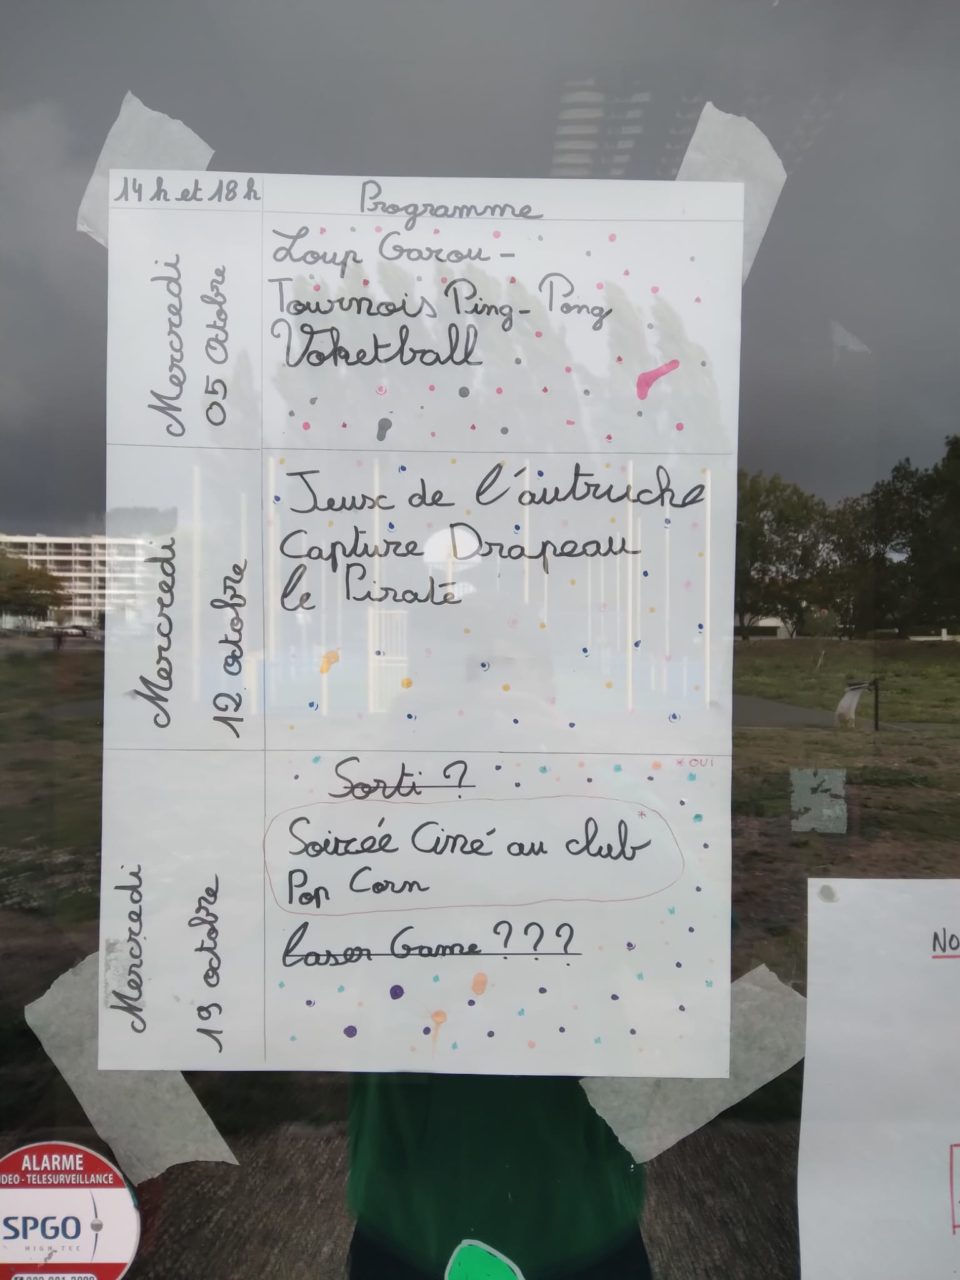 14 h et 18 h
Programme
Mercredi
05 Octobre
Loup Garou -
Tournois Ping-Pong
Voketball
Mercredi
12 octobre
Jeux de l'autruche
Capture Drapeau
le Pirate
Mercredi
19 octobre
* OUI
Sorti ?
Soirée Ciné au club *
Pop Corn
laser Game ???
NO
ALARME
DEO - TELESURVEILLANCE
SPGO
HIGH TEC